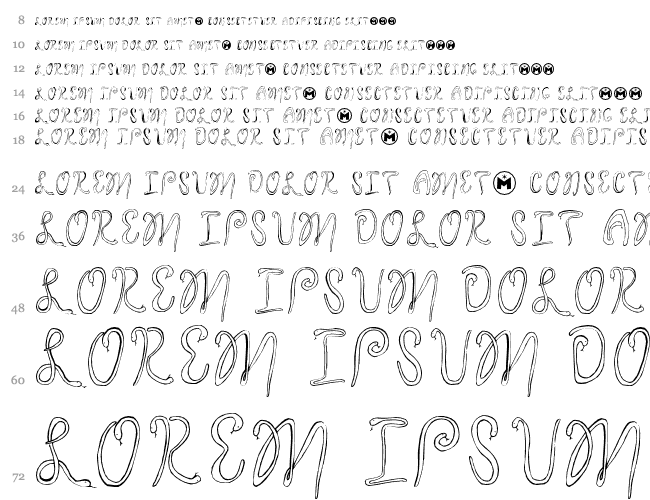 8 LOREM IPSUM DOLOR SIT AMET CONSECTETUER ADIPISCING ELIT
10 LOREM IPSUM DOLOR SIT AMET CONSECTETUER ADIPISCING ELIT
12 LOREM IPSUM DOLOR SIT AMET CONSECTETUER ADIPISCING ELIT
14 LOREM IPSUM DOLOR SIT AMET CONSECTETUER ADIPISCING ELIT
16 LOREM IPSUM DOLOR SIT AMET CONSECTETUER ADIPISCING ELI
18 LOREM IPSUM DOLOR SIT AMET CONSECTETUER ADIPIS
24 LOREM IPSUM DOLOR SIT AMET CONSECTE
36 LOREM IPSUM DOLOR SIT AM
48 LOREM IPSUM DOLOR
60 LOREM IPSUM DO
72 LOREM IPSUM